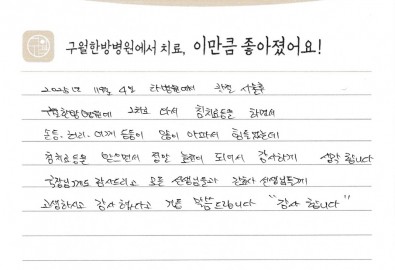 구월한방병원에서 치료, 이만큼 좋아졌어요!
2025년 11월 4일 타병원에서 수술후
구월한방병원에 와서 침치료등을 하면서
손등. 허리. 어깨 등등이 많이 아파서 힘들었는데
침치료등을 받으면서 정말 도움이 되어서 감사하게 생각합니다
원장님께도 감사드리고 모든 선생님들과 간호사 선생님들께
고생하시고 감사하다고 말씀드립니다 "감사합니다"